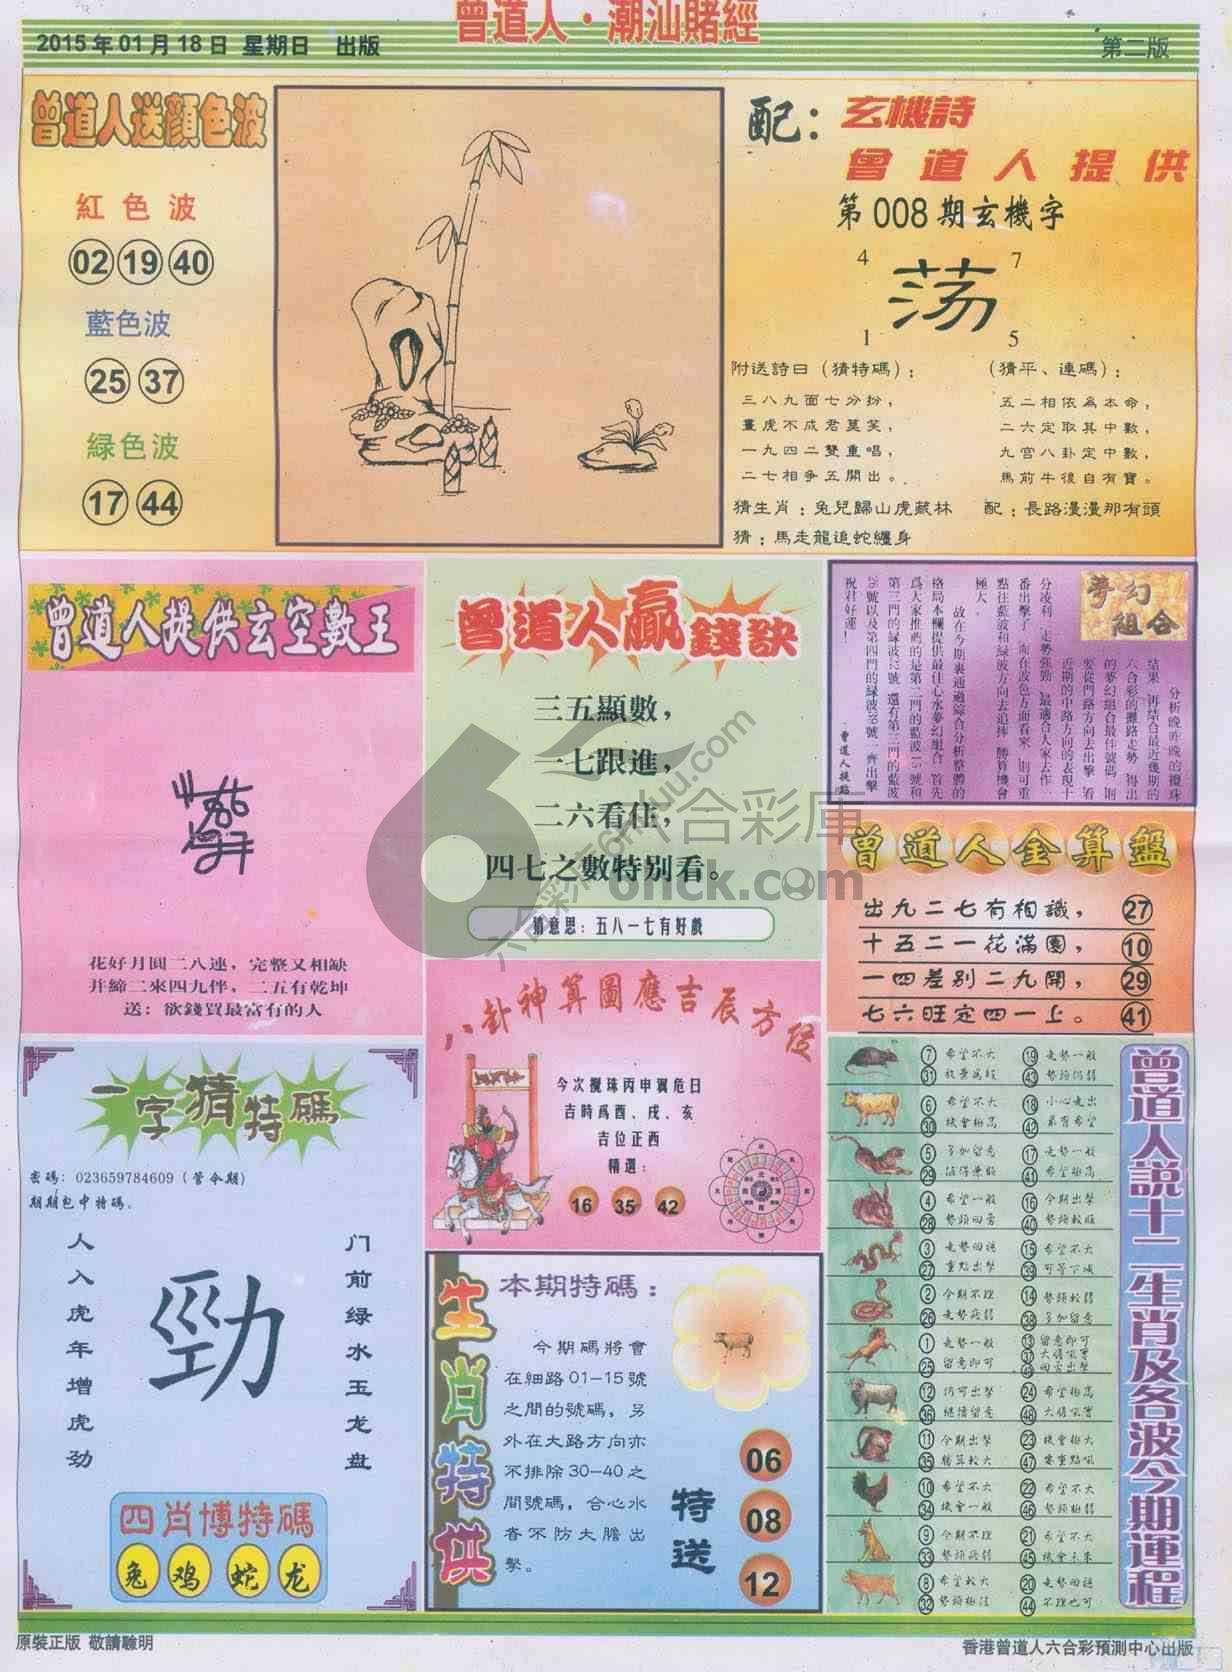 曾道人·潮汕賭經
2015年01月18日 星期日 出版
第二版
曾道人送顏色波
紅色波
02 19 40
藍色波
25 37
緑色波
17 44
配：玄機詩
曾道人提供
第008期玄機字
4 7
荡
1 5
附送詩曰（猜特碼）：
三八九面七分扮，
畫虎不成君莫笑，
一九四二雙重唱，
二七相争五開出。
（猜平、連碼）：
五二相依為本命，
二六定取其中數，
九宫八卦定中數，
馬前牛後自有寶。
猜生肖：兔兒歸山虎藏林
配：長路漫漫那有頭
猜：馬走龍追蛇纏身
曾道人提供玄空數王
花好月圓二八連，完整又相缺
并締二來四九伴，二五有乾坤
送：欲錢買最富有的人
曾道人贏錢訣
三五顯數，
一七跟進，
二六看住，
四七之數特别看。
猜意思：五八一七有好戲
六合彩庫
6hck.com
夢幻
組合
分析晚昨晚的攪珠
結果，再結合最近幾期的
六合彩的攤路走勢，得出
的夢幻組合最佳號碼，則
要從門路方向去出擊，看
近期的中路方向的表現十
分凌利，走勢强勁，最適合人家去作
番出擊了，而在波色方面看來，則可重
點往藍波和緑波方向去追捧，勝算機會
極大。
故在今期裏通過綜合分析整體的
格局本欄提供最佳心水夢幻組合，首先
爲大家推薦的是第二門的藍波15號和
祝君好運！
曾道人提點
曾道人金算盤
出九二七有相識， 27
十五二一花滿園， 10
一四差别二九開， 29
七六旺定四一上。 41
八卦神算圖應吉辰方位
今次攪珠丙申興危日
吉時爲酉、戌、亥
吉位正西
精選：
16 35 42
一字猜特碼
密碼：023659784609（管令期）
期期包中特碼。
人入虎年增虎劲
勁
门前绿水玉龙盘
四肖博特碼
兔 鸡 蛇 龙
生肖特供
本期特碼：
今期碼將會
在細路01—15號
之間的號碼，另
外在大路方向亦
不排除30—40之
間號碼，合心水
者不防大膽出
擊。
特送
06
08
12
曾道人説十二生肖及各波今期運程
7 希望不大 19 走勢一般
31 43
6 希望不大 18 小心走出
30 機會極高 42 最有希望
5 多加留意 17 走勢一般
29 41 希望極高
4 希望一般 16 今期出擊
28 勢頭回舊 40 勢頭較旺
3 走勢回穩 15 希望不大
27 重點出擊 39
2 今期不理 14 勢頭較弱
26 走勢疲弱 38 多加留意
1 走勢一般 13 留意即可
25 留意即可 37
49 回雲出擊
12 仍可出擊 24 希望極高
36 繼續留意 48
11 今期出擊 23 機會極大
35 勝算較大 47
10 希望不大 22 希望不大
34 機會一般 46 勢頭極弱
9 今期不理 21 希望不大
33 勢頭疲弱 45 機會未來
8 希望較大 20 走勢回穩
32 44 不理也可
原裝正版 敬請驗明
香港曾道人六合彩預測中心出版